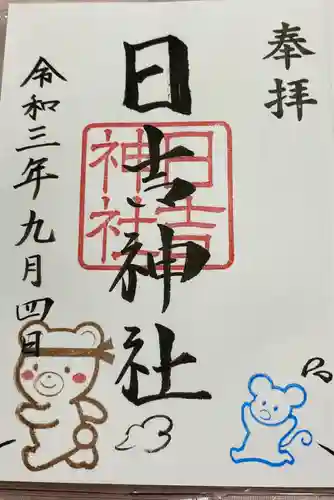 奉拝
日吉神社
日吉
神社
令和三年九月四日